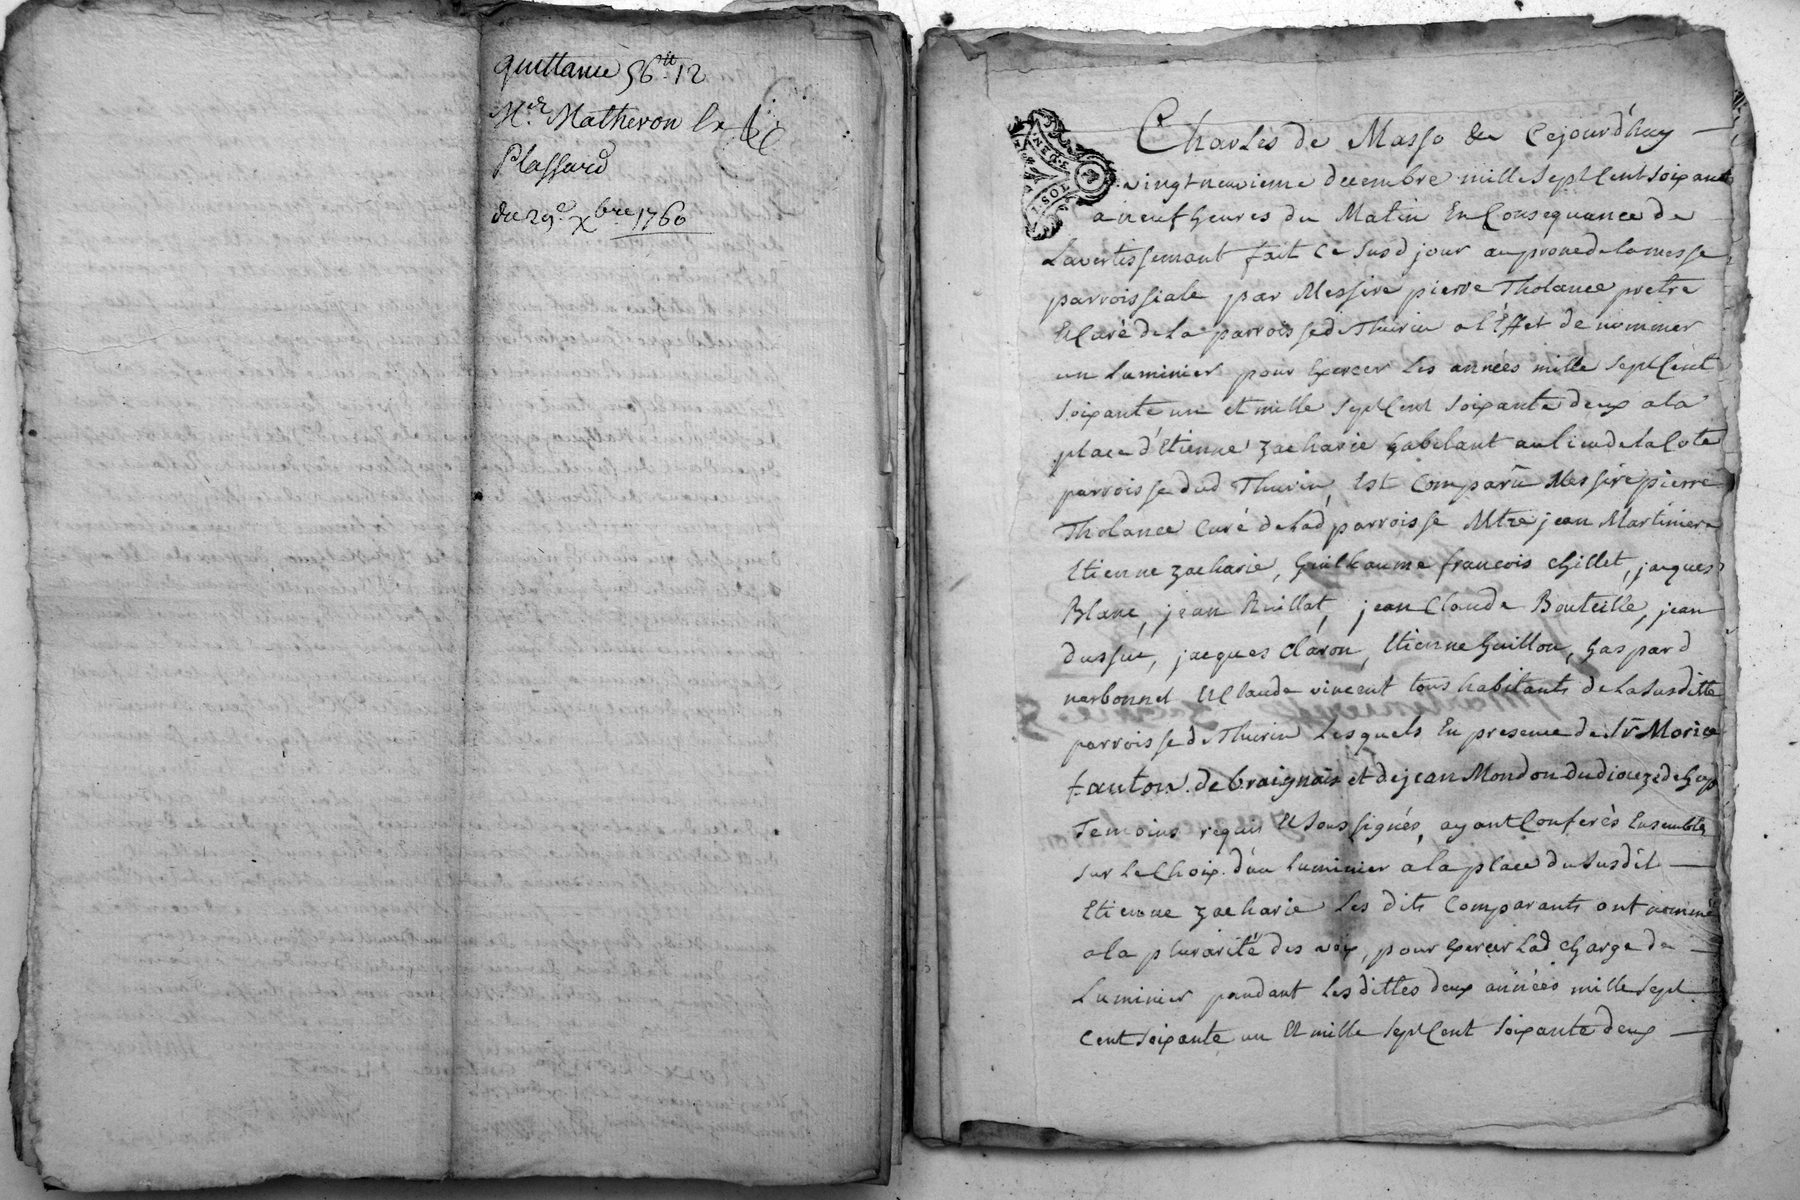 quittance 56tt 12
Mer Matheron le
Plassard
du 29e xbre 1760
Charles de Masso &c Cejourd'huy
vingt neuvieme decembre mille sept Cent soixante
a neuf heures du Matin En Consequance de
Lavertissemant fait Ce susd jour au prone de la messe
parroissiale par Messire pierre Tholance pretre
Et Curé de La parroisse de Thurin a l'Effet de nommer
un Luminier pour Exercer Les années mille sept Cent
soixante un et mille sept Cent soixante deux a la
place d'Etienne zacharie habitant au lieu de la Cote
parroisse dud Thurin, Est Comparu Messire pierre
Tholance Curé de Lad parroisse Mtre jean Martiniere
Etienne zacharie, Guilhaume françois Chillet, jacques
Blanc, jean Ruillat, jean Claude Bouteille, jean
dussuc, jacques Claron, Etienne Guillon, Gaspard
narbonnet Et Claude vincent tous habitants de La susditte
parroisse de Thurin Lesquels En presence de Sr Morice
fauton de braignais et de jean Mondon du dioceze de Gap
Temoins requis Et soussignés, ayant Conferés Ensemble
sur Le Choix d'un Luminier a la place du susdit
Etienne zacharie Les dits Comparants ont nommé
a la plurarité des voix, pour Exercer Lad Charge de
Luminier pandant Les dittes deux années mille sept
Cent soixante un Et mille sept Cent soixante deux